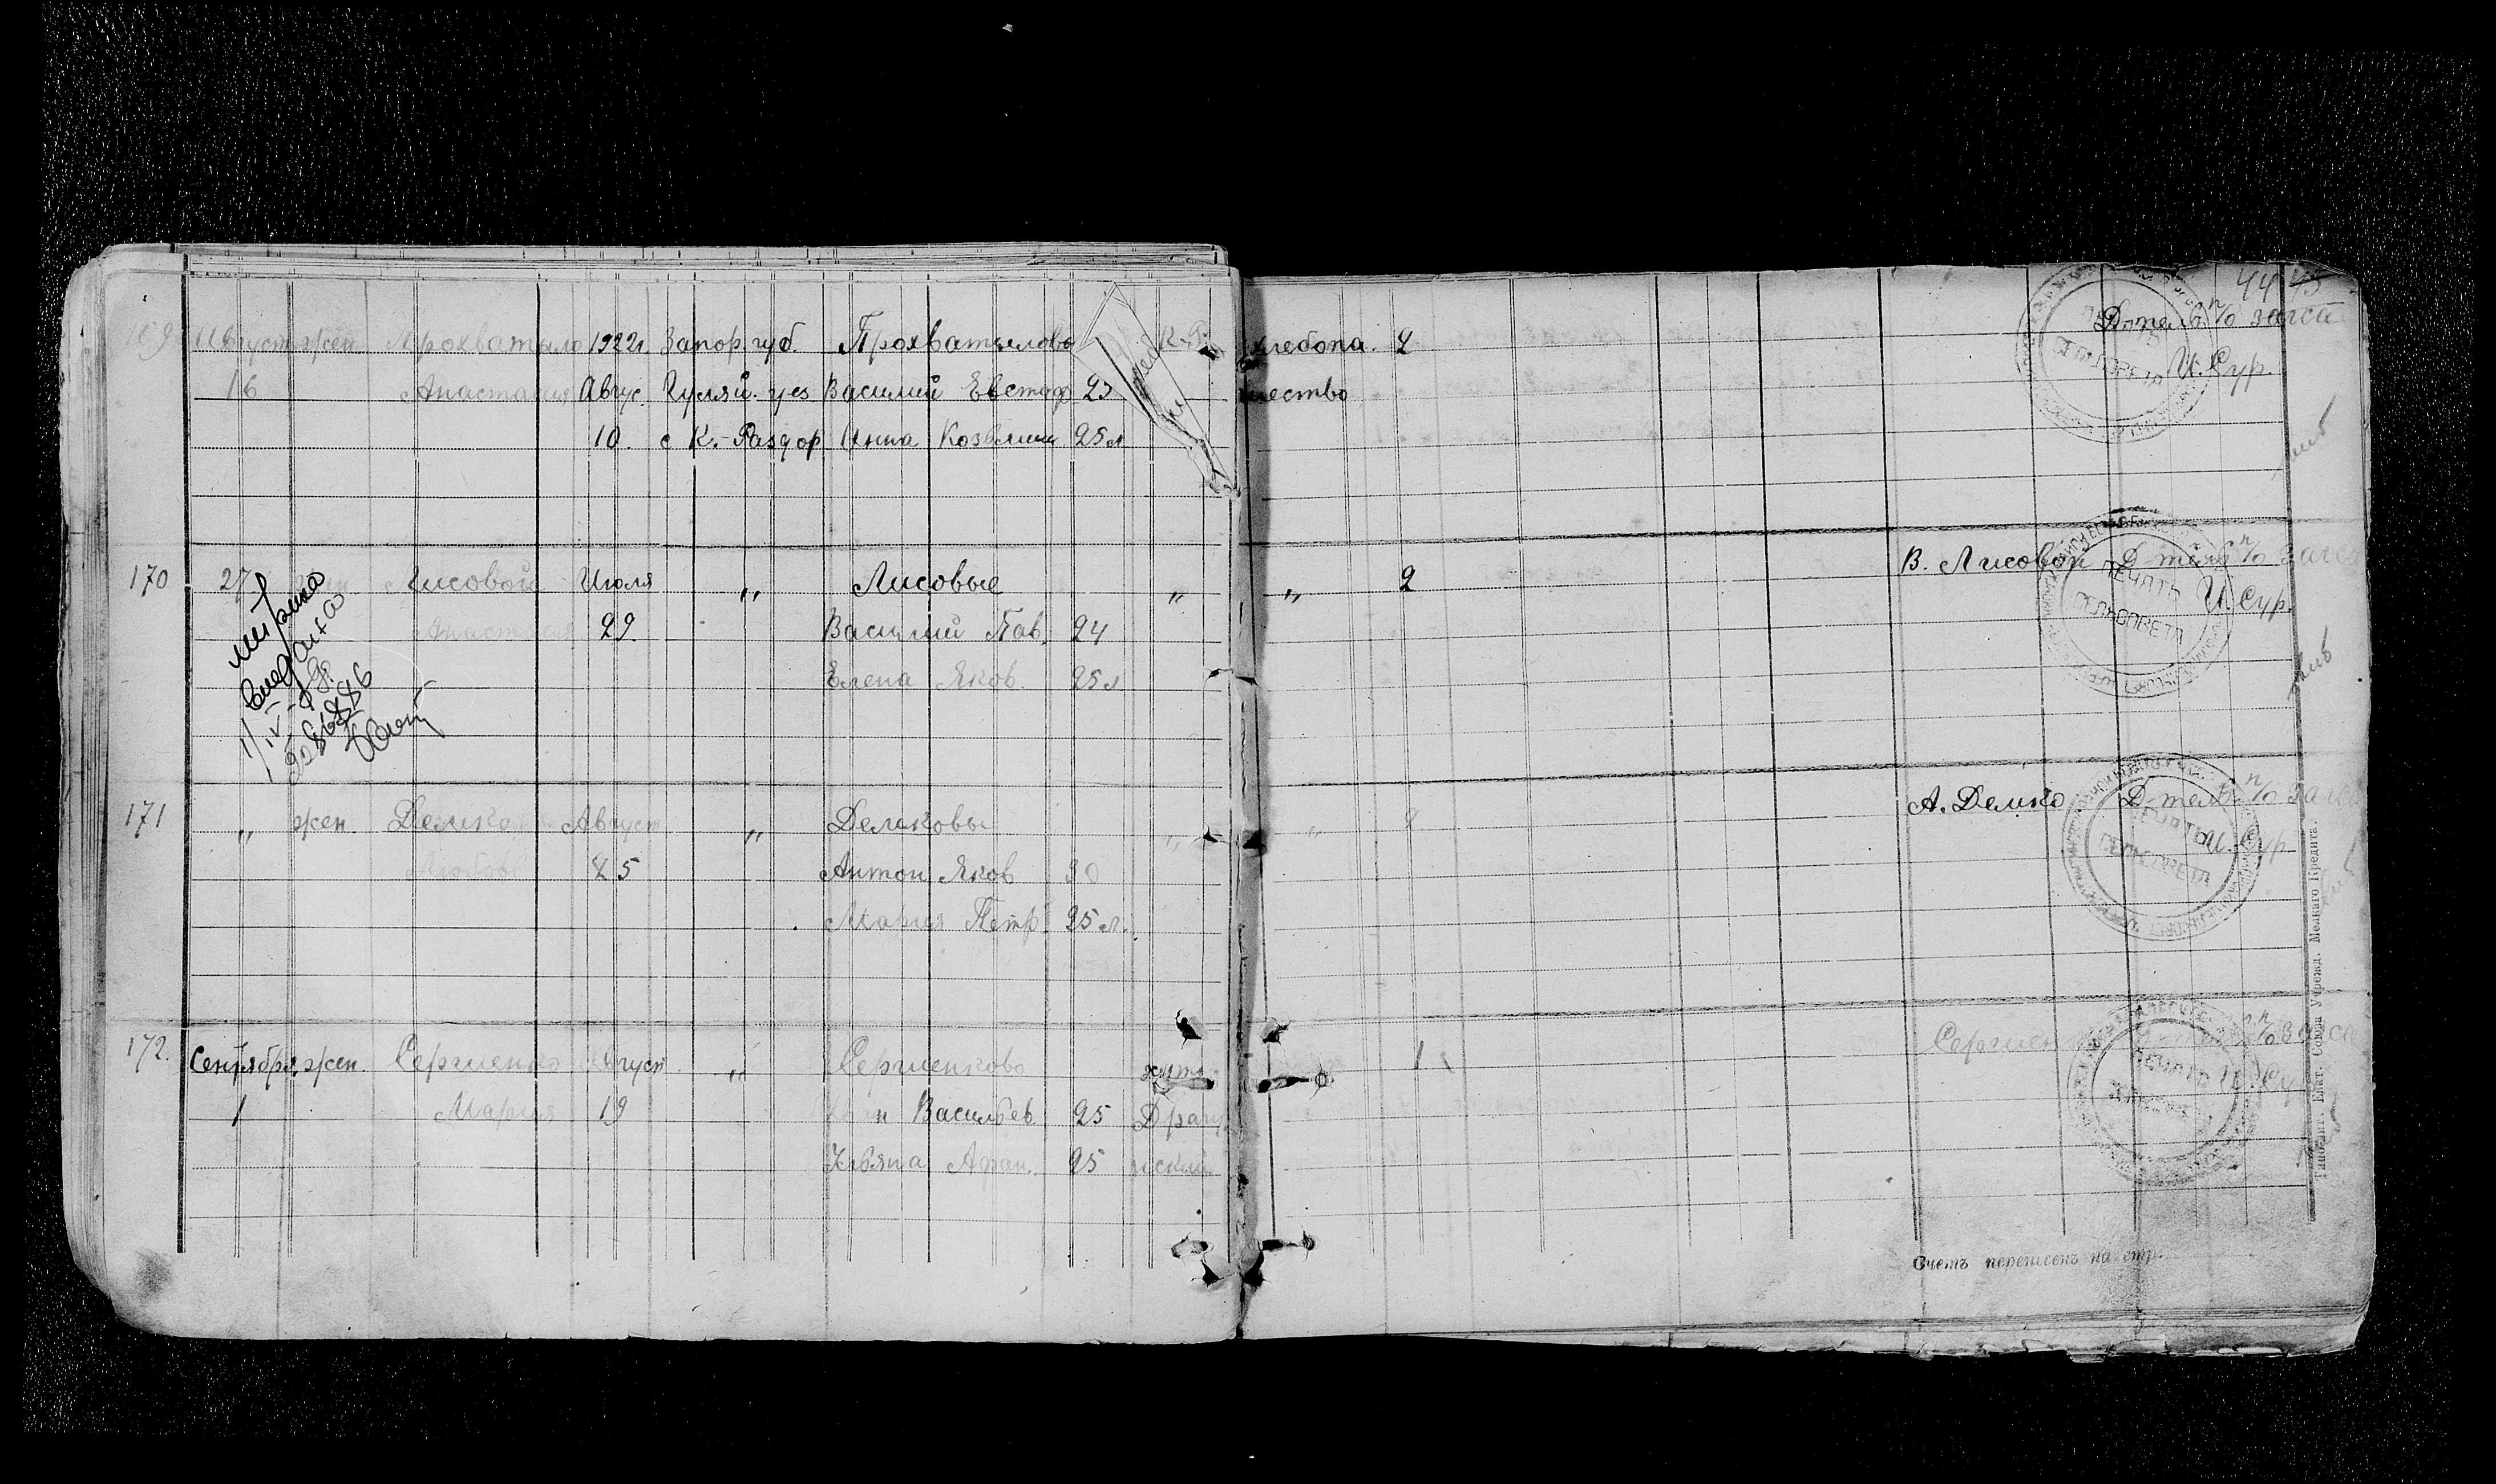 44 45
169 Август жен Прохватило 1922г. Запор. губ. Прохватилово К.-Р. хлебопа. 2 Д-тель п/о загса
16 Анастасия Авгус. Гуляй. уез. Василий Евстаф 23 шество И. Сур.
10. с К.-Раздор Анна 25 л
170 27 Лисовой Июля " Лисовые " " 2 В. Лисовой Д-тель п/о загса
Анастасия 29. Василий Пав. 24 И. Сур.
Елена Яков. 25 л
метрика
выдана
171 " жен Демко Август " Демковы " " 2 А. Демко Д-тель п/о загса
Любовь 25 Антон Яков 30 И. Сур
Мария Петр. 25 л.
172. Сентября жен. Сергиенко Август " Сергиенково хут. 1 Сергиен п/о загса
1 Мария 19 Васильев 25 И. Сур
Афан. 25
ПЕЧАТЬ
СЕЛЬСОВЕТА
Типолит. Екат. Союза Учрежд. Мелкаго Кредита.
Счетъ перенсенъ на стр.